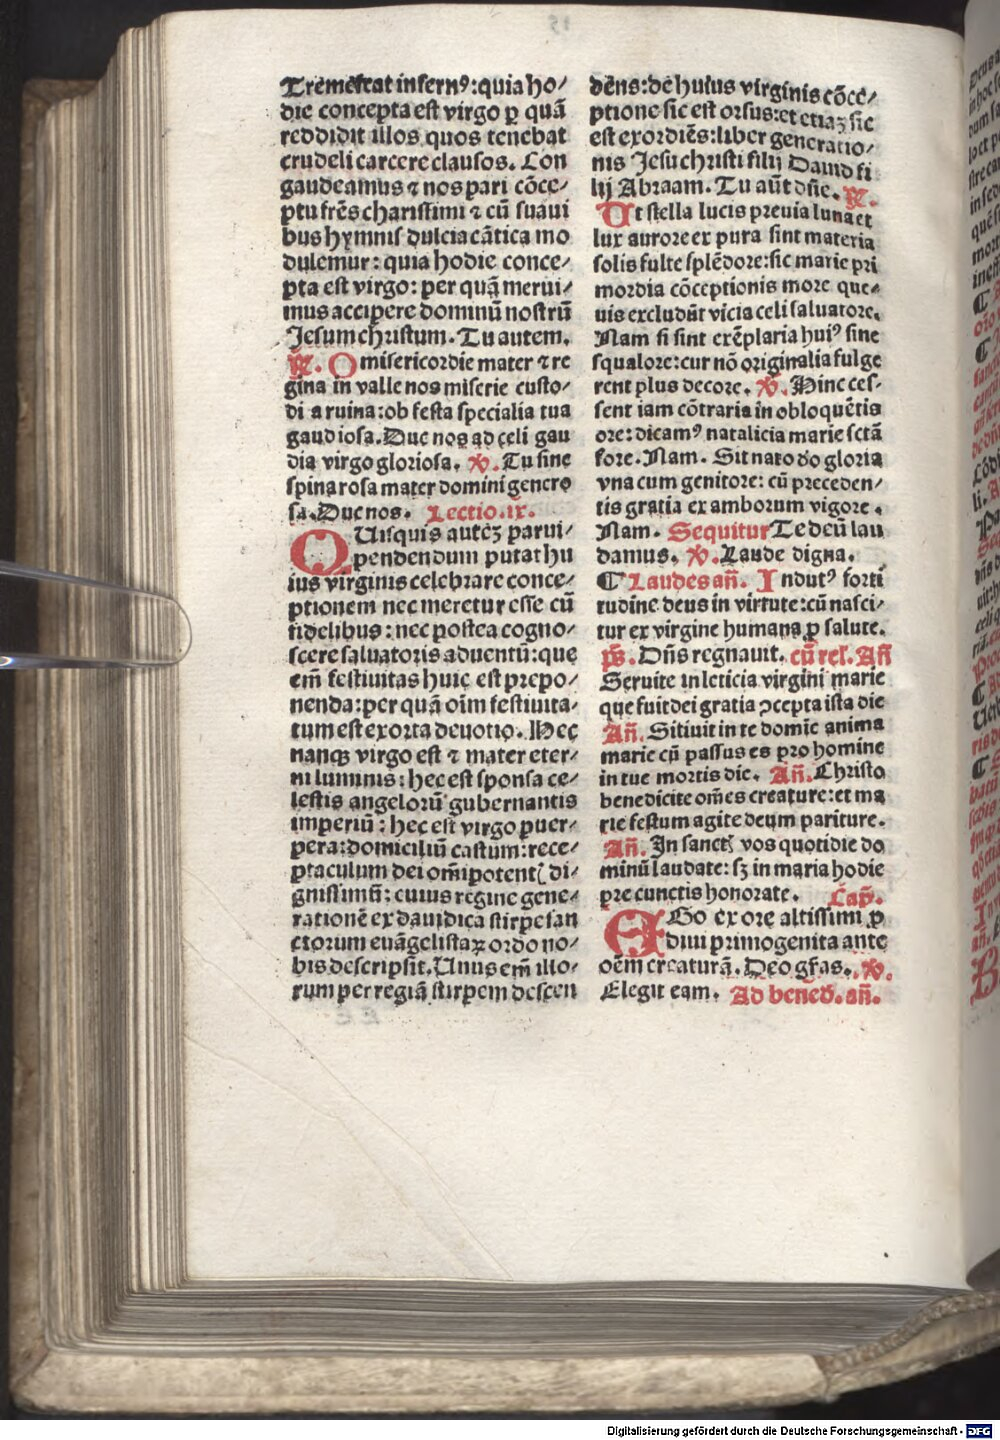 Tremescat infernꝰ: quia ho⸗
die concepta est virgo ꝑ quã
reddidit illos quos tenebat
crudeli carcere clausos. Con
gaudeamus ⁊ nos pari cõce⸗
ptu frẽs charissimi ⁊ cũ suaui
bus hymnis dulcia cãtica mo
dulemur: quia hodie conce⸗
pta est virgo: per quã merui⸗
mus accipere dominũ nostrũ
Jesum christum. Tu autem.
R̃. O misericordie mater ⁊ re
gina in valle nos miserie custo⸗
di a ruina: ob festa specialia tua
gaudiosa. Duc nos ad celi gau
dia virgo gloriosa. V̓. Tu sine
spina rosa mater domini genero
sa. Duc nos. Lectio.ix.
QUisquis autẽ parui⸗
pendendum putat hu
ius virginis celebrare conce⸗
ptionem nec meretur esse cũ
fidelibus: nec postea cogno⸗
scere saluatoris aduentũ: que
em̃ festiuitas huic est prepo⸗
nenda: per quã oĩm festiuita⸗
tum est exorta deuotio. Hec
nanqꝫ virgo est ⁊ mater eter⸗
ni luminis: hec est sponsa ce⸗
lestis angelorũ gubernantis
imperiũ: hec est virgo puer⸗
pera: domiciliũ castum: rece⸗
ptaculum dei om̃ipotentꝭ di⸗
gnissimũ: cuius regine gene⸗
rationẽ ex dauidica stirpe san
ctorum euãgelistaꝝ ordo no⸗
bis descripsit. Unus em̃ illo⸗
rum per regiã stirpem descen
dẽns: de huius virginis cõce⸗
ptione sic est orsus: et etiaꝫ sic
est exordiẽs: liber generatio⸗
nis Jesu christi filij Dauid fi
lij Abraam. Tu aũt dñe. R̃.
Ut stella lucis preuia luna et
lux aurore ex pura sint materia
solis fulte splẽdore: sic marie pri
mordia cõceptionis more que⸗
uis excludũt vicia celi saluatore.
Nam si sint exẽplaria huiꝰ sine
squalore: cur nõ originalia fulge
rent plus decore. V̓. Hinc ces⸗
sent iam cõtraria in obloquẽtis
ore: dicamꝰ natalicia marie sctã
fore. Nam. Sit nato do gloria
vna cum genitore: cũ preceden⸗
tis gratia ex amborum vigore.
Nam. Sequitur Te deũ lau
damus. V̓. Laude digna.
¶ Laudes añ. Indutꝰ forti
tudine deus in virtute: cũ nasci⸗
tur ex virgine humana ꝓ salute.
ps̃. Dñs regnauit. cũ rel. Añ
Seruite in leticia virgini marie
que fuit dei gratia ꝯcepta ista die
Añ. Sitiuit in te domie anima
marie cũ passus es pro homine
in tue mortis die. Añ. Christo
benedicite om̃es creature: et ma
rie festum agite deum pariture.
Añ. In sanctꝭ vos quotidie do
minũ laudate: sꝫ in maria hodie
pre cunctis honorate. Cap̃.
EGo ex ore altissimi ꝓ
diui primogenita ante
oẽm creaturã. Deo gr̃as. V̓.
Elegit eam. Ad bened̃. añ.
Digitalisierung gefördert durch die Deutsche Forschungsgemeinschaft - DFG